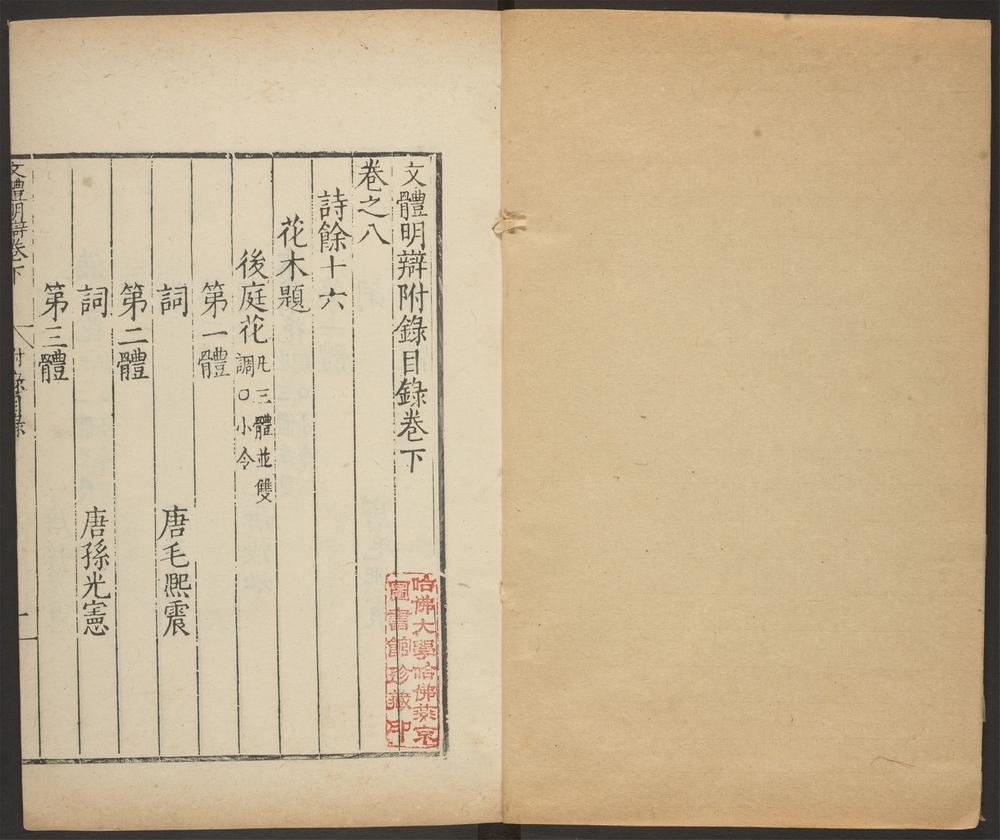 文體明辯附錄目錄卷下
卷之八
詩餘十六
花木題
後庭花凡三體並雙
調○小令
第一體
詞 唐毛熙震
第二體
詞 唐孫光憲
第三體
文體明辯卷下 附錄目錄 一
哈佛大學哈佛燕京
圖書館珍藏印